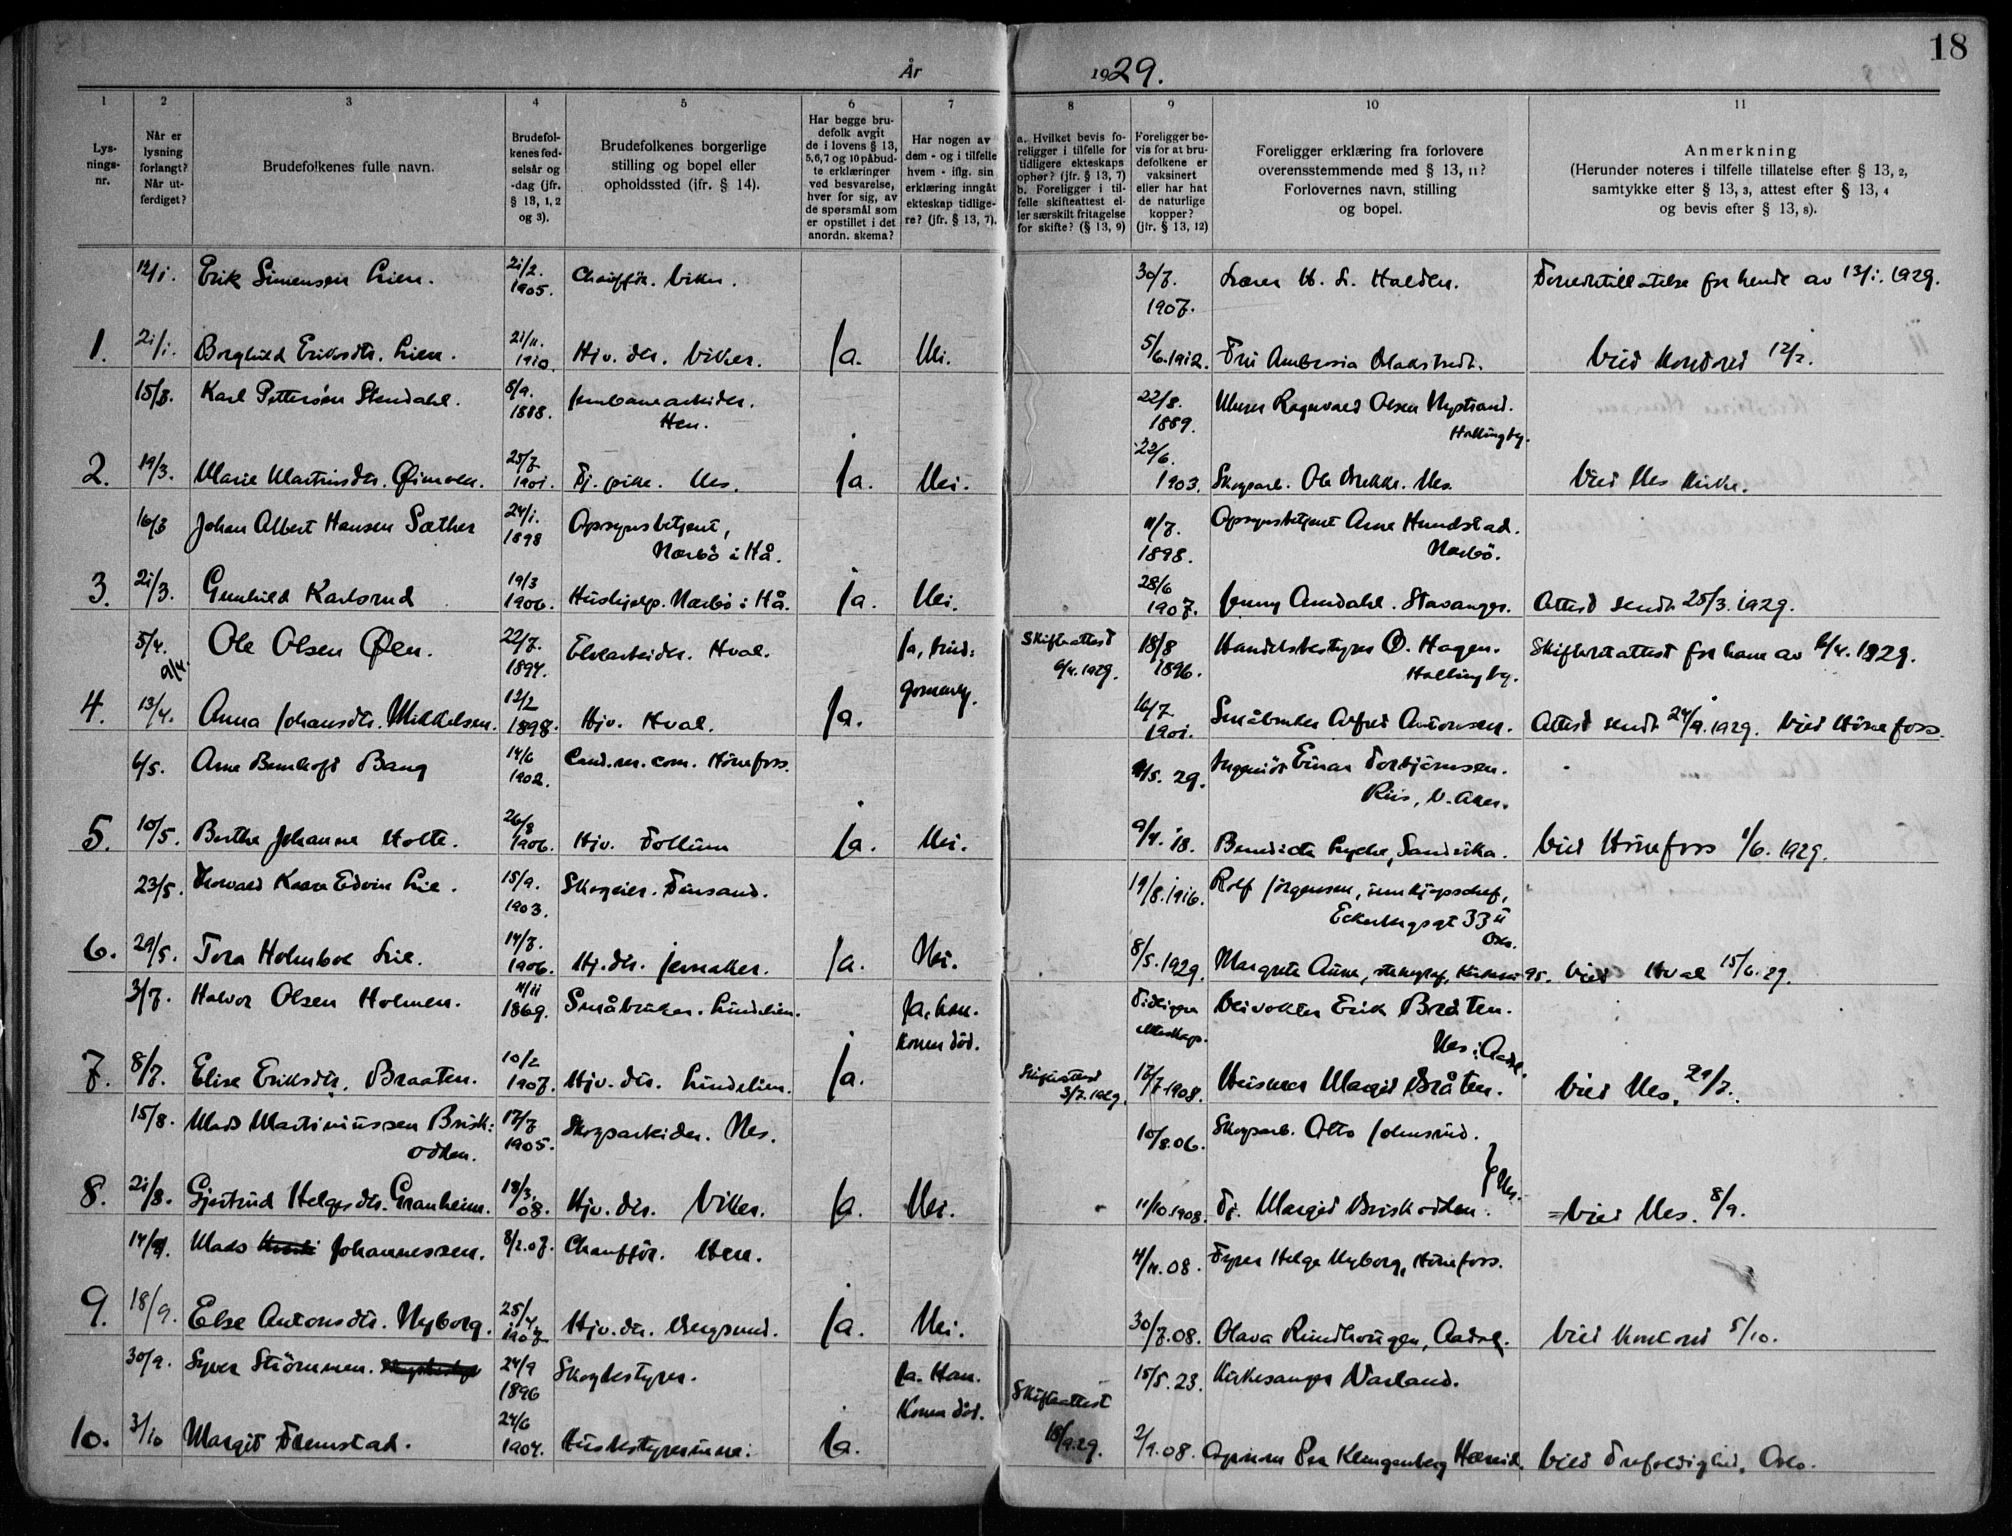 18
År 1929.
1 2 3 4 5 6 7 8 9 10 11
Lysningsnr.
Når er lysning forlangt? Når utferdiget?
Brudefolkenes fulle navn.
Brudefolkenes fødselsår og -dag (jfr. § 13, 1, 2 og 3).
Brudefolkenes borgerlige stilling og bopel eller opholdssted (jfr. § 14).
Har begge brudefolk avgit de i lovens § 13, 5, 6, 7 og 10 påbudte erklæringer ved besvarelse, hver for sig, av de spørsmål som er opstillet i det anordn. skema?
Har nogen av dem - og i tilfelle hvem - iflg. sin erklæring inngåt ekteskap tidligere? (jfr. § 13, 7).
a. Hvilket bevis foreligger i tilfelle for tidligere ekteskaps ophør? (jfr. § 13, 7) b. Foreligger i tilfelle skifteattest eller særskilt fritagelse for skifte? (§ 13, 9)
Foreligger bevis for at brudefolkene er vaksinert eller har hat de naturlige kopper? (jfr. § 13, 12)
Foreligger erklæring fra forlovere overensstemmende med § 13, 11? Forlovernes navn, stilling og bopel.
Anmerkning (Herunder noteres i tilfelle tillatelse efter § 13, 2, samtykke efter § 13, 3, attest efter § 13, 4 og bevis efter § 13, 8).
12/1 Erik Simensen Lien. 21/2. 1905. Chauffør. Viker. 30/7. 1907. Lærer H. L. Halden. av 13/1. 1929.
1. 21/1. Borghild Eriksdtr. Lien. 21/11. 1910. Hjv. dtr. Viker. Ja. Nei. 5/6.1912. Fru Ambrosia Viet 12/2.
15/3. Karl Petterson Stendahl. 8/9. 1888. Jernbanearbeider. Hen. 22/8. 1889. Murer Ragnvald Olsen Nystrand. Hallingby.
2. 19/3. Marie Martinsdtr. 25/7 1901. Tj. pike. Nes. Ja. Nei. 22/6. 1903. Skogarb. Ole Nes. Viet Nes kirke.
16/3 Johan Albert Hansen Sæther 24/1. 1898 Opsynsbetjent, Nærbö i Hå. 11/7. 1898. Opsynsbetjent Arne Hundstad. Nærbö.
3. 21/3. Gunhild Karlsrud 19/3 1906. Hushjelp. Nærbö i Hå. Ja. Nei. 28/6 1907. Jenny Amdahl. Stavanger. Attest sendt 25/3. 1929.
5/4. 9/4. Ole Olsen Øen. 22/7. 1894. Elvearbeider. Hval. Ja, brudgommen. Skifteattest 6/4.1929. 18/8 1896. Handelsbestyrer O. Hagen. Hallingby. Skifteattest for ham av 6/4. 1929.
4. 13/4. Anna Johansdtr. Mikkelsen. 12/2 1898. Hjv. Hval. Ja. 16/7 1901. Småbruker Alfred Antonsen. Attest sendt 24/9.1929. Viet Hönefoss.
6/5. Arne Bang 14/6 1902. Cand. m. com. Hönefoss. /5. 29. Ingeniör Einar Torbjörnsen. Riis, V. Aker.
5. 10/5. Berthe Johanne Holte. 26/8 1906. Hjv. Follum Ja. Nei. 9/4. 18. Benedicte Lycke, Sandvika. Viet Hönefoss 1/6. 1929.
23/5. Thorvald Kaare Edvin Lie. 15/9. 1903. Skogeier. Finsand. 19/8.1916. Rolf Jörgensen, innkjöpschef, Eckersbergsgt 33 II Oslo.
6. 29/5. Tora Holmboe Lie. 14/7. 1906. Hj. dtr. Jevnaker. Ja. Nei. 8/5.1929. Margrete Aune, 95. Viet Hval 15/6. 29.
3/7. Halvor Olsen Holmen. 11/11 1869. Småbruker. Lindelien. Ja. han. Konen död. Tidligere ekteskap. Veivokter Erik Bråten. Nes i Aadal.
7. 8/7. Elise Eriksdtr. Braaten. 10/2 1907. Hjv. dtr. Lindelien. Ja. Skifteattest 3/7.1929. 17/7 1908. Husmor Margit Bråten. Viet Nes. 29/7.
15/8. Mads Martiniussen Briskodden. 17/7 1905. Skogarbeider. Nes. 10/8.06. Skogarb. Otto Johnsrud.
8. 21/8. Gjertrud Helgesdtr. Granheim. 18/3. 08. Hjv. dtr. Viker. Ja. Nei. 11/10.1908. Fr. Margit Briskodden. } Nes. Viet Nes. 8/9.
14/9. Mads Johannessen. 8/2.07. Chauffør. Hen. 4/11. 08. Fyrer Helge Nyborg, Hönefoss.
9. 18/9. Else Antonsdtr. Nyborg. 25/4. 1907 Hjv. dtr. Bergsund. Ja. Nei. 30/7.08. Olava Rundhougen, Aadal. Viet 5/10.
30/9. Syver Strömmen. 24/9 1896 Skogbestyrer. Ja. Han. Konen död. Skifteattest 18/9.29. 15/5. 23. Kirkesanger Narland.
10. 3/10 Margit 24/6 1904. Husbestyrerinne. Ja. 2/9.08. Per Klingenberg Viet Trefoldighet, Oslo.